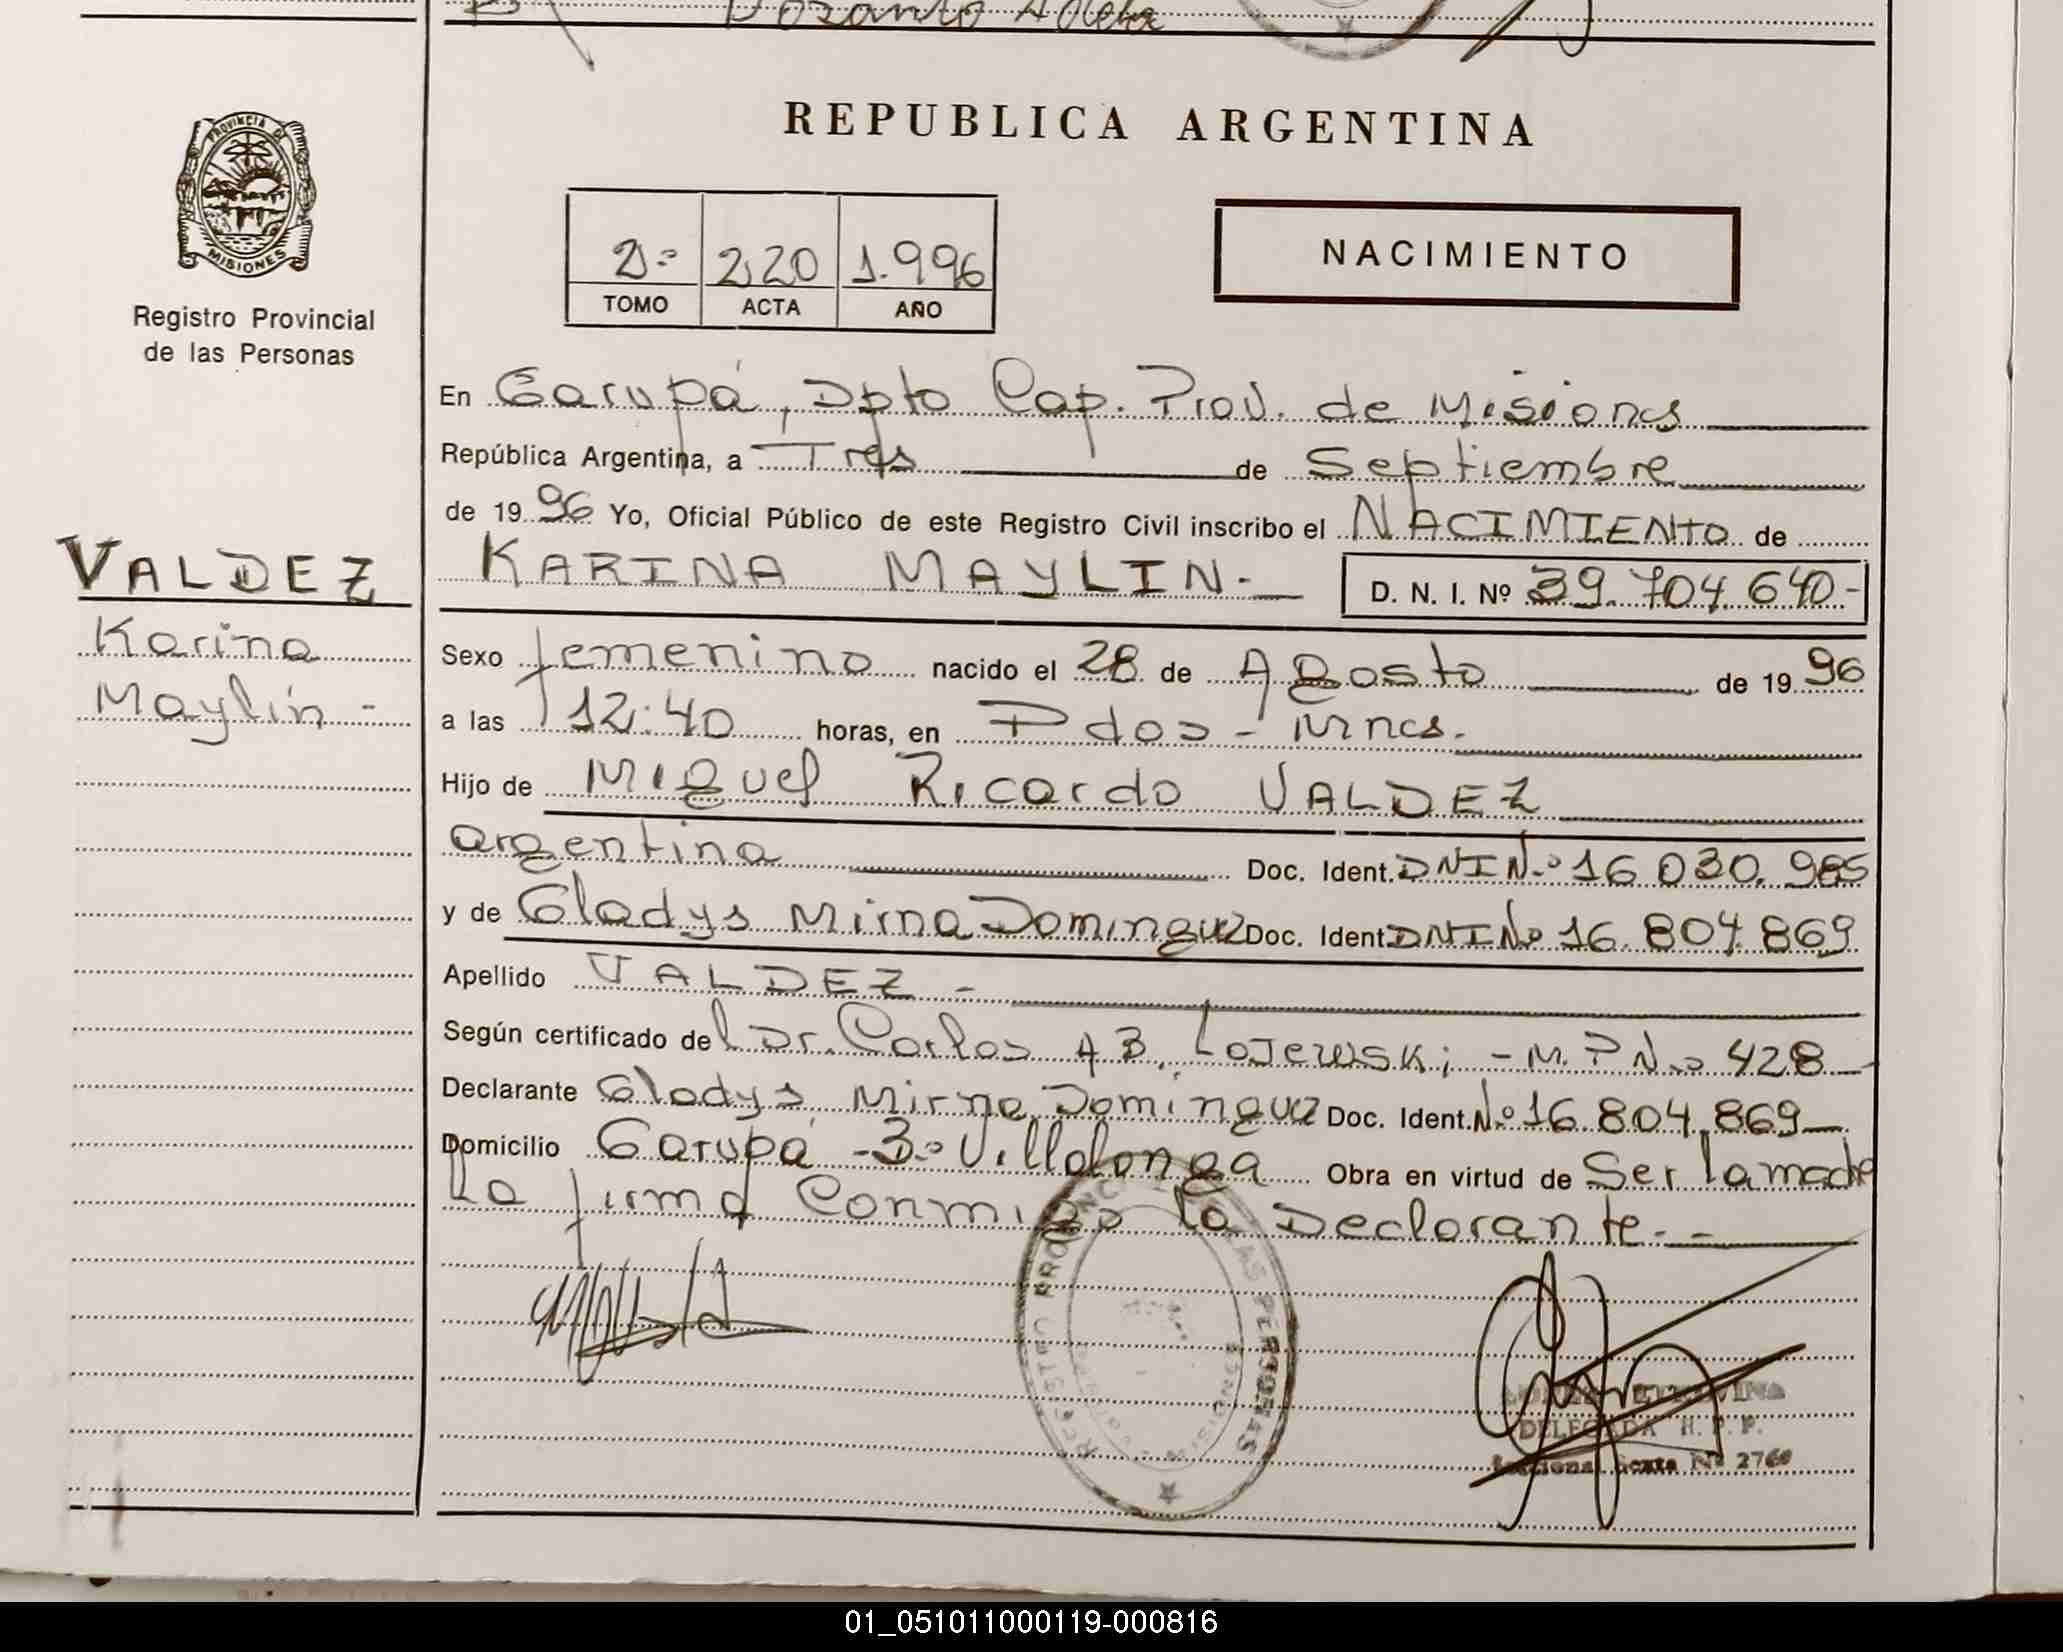 REPUBLICA ARGENTINA
PROVINCIA DE
MISIONES
Registro Provincial
de las Personas
2º 220 1.996
TOMO ACTA AÑO
NACIMIENTO
En Garupá, Dpto Cap. Prov. de Misiones
República Argentina, a Tres de Septiembre
de 1996 Yo, Oficial Público de este Registro Civil inscribo el NACIMIENTO de
VALDEZ
Karina
Maylin -
KARINA MAYLIN.- D. N. I. Nº 39.704.640-
Sexo femenino nacido el 28 de Agosto de 1996
a las 12:40 horas, en Pdas - Mnes.
Hijo de Miguel Ricardo VALDEZ
argentina Doc. Ident. DNI Nº 16 030.985
y de Gladys Mirna Dominguez Doc. Ident. DNI Nº 16.804.869
Apellido VALDEZ -
Según certificado del Dr. Carlos A B. Lojewski - M. P Nº 428
Declarante Gladys Mirna Dominguez Doc. Ident. Nº 16.804.869
Domicilio Garupá - Bº Villalonga Obra en virtud de Ser la madre
La firma Conmigo la Declarante.-
REGISTRO PROVINCIAL DE LAS PERSONAS
DELEGADA R. P. P.
Seccional Sexta Nº 2760
01_051011000119-000816